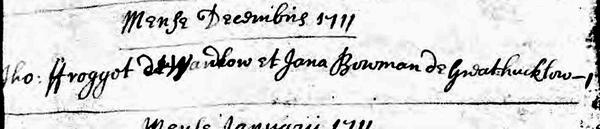 Mense Decembris 1711
Tho: ffroggot de Wardlow et Jana Bowman de Greathucklow – 1
Mense Januarij 1711